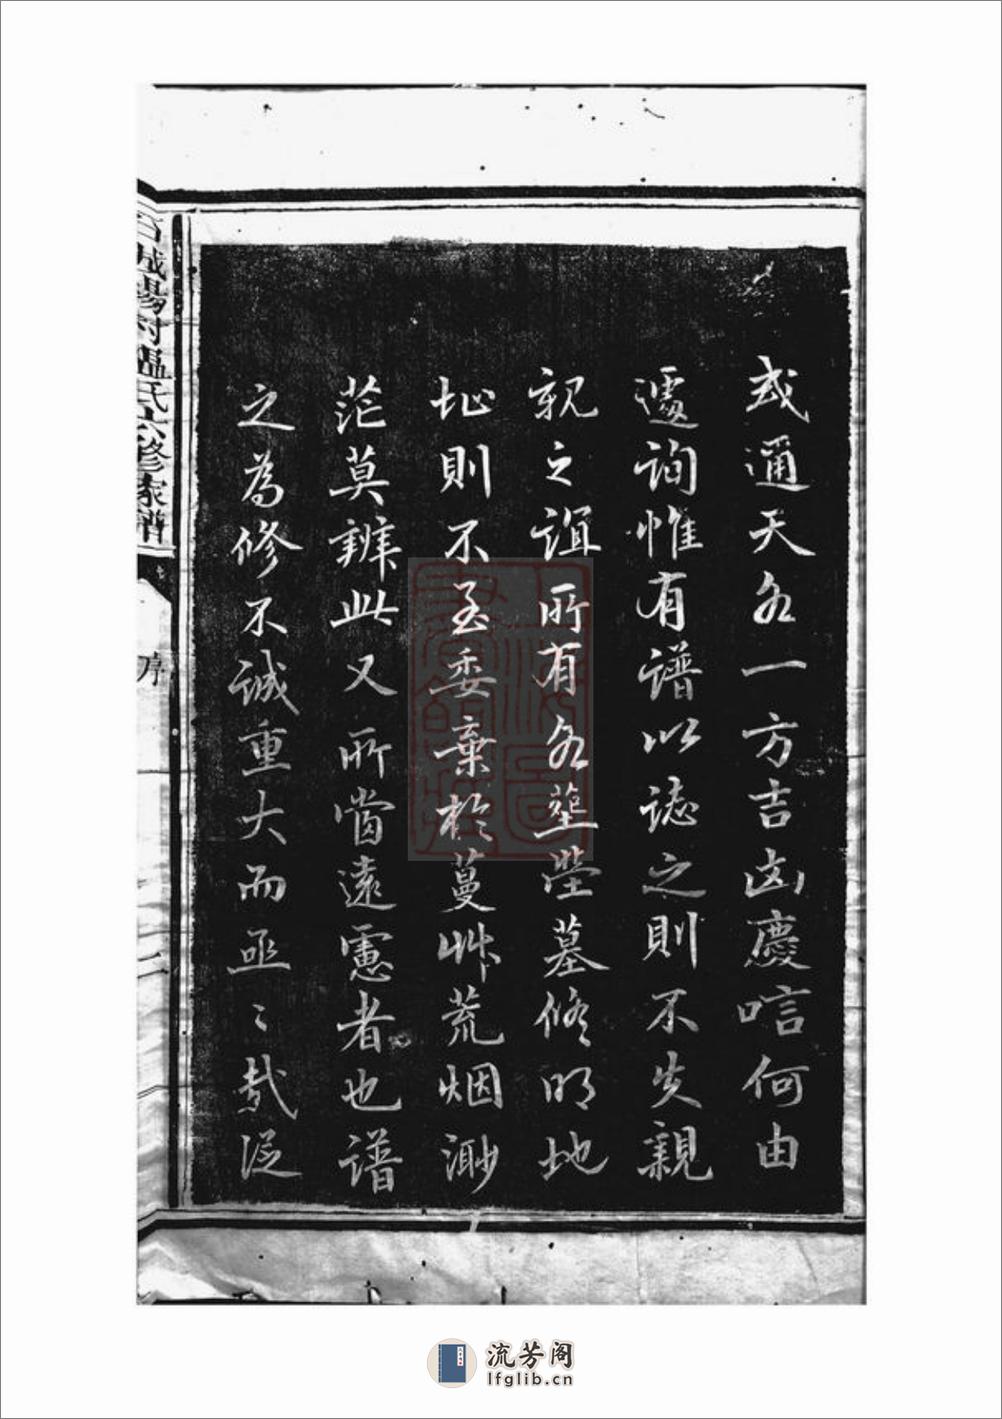 或通天各一方吉凶慶唁何由
遽詢惟有譜以誌之則不失親
親之誼所有各塋塋墓修明地
址則不至委棄於蔓艸荒烟渺
茫莫辨此又所當遠慮者也譜
之為修不誠重大而亟〻哉從
石城湯村溫氏六修家譜
序
二
流芳阁
lfglib.cn